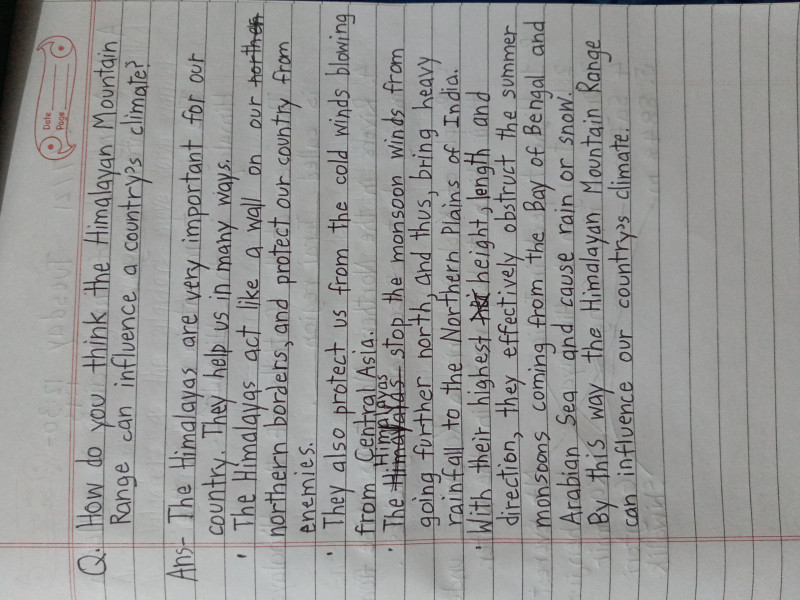 Date
Page
Q. How do you think the Himalayan Mountain
Range can influence a country's climate?
Ans- The Himalayas are very important for our
country. They help us in many ways.
• The Himalayas act like a wall on our northen
northern borders, and protect our country from
enemies.
• They also protect us from the cold winds blowing
from Central Asia.
• The Himalayas Himalayas stop the monsoon winds from
going further north, and thus, bring heavy
rainfall to the Northern Plains of India.
• With their highest height, length and
direction, they effectively obstruct the summer
monsoons coming from the Bay of Bengal and
Arabian Sea and cause rain or snow.
By this way the Himalayan Mountain Range
can influence our country's climate.